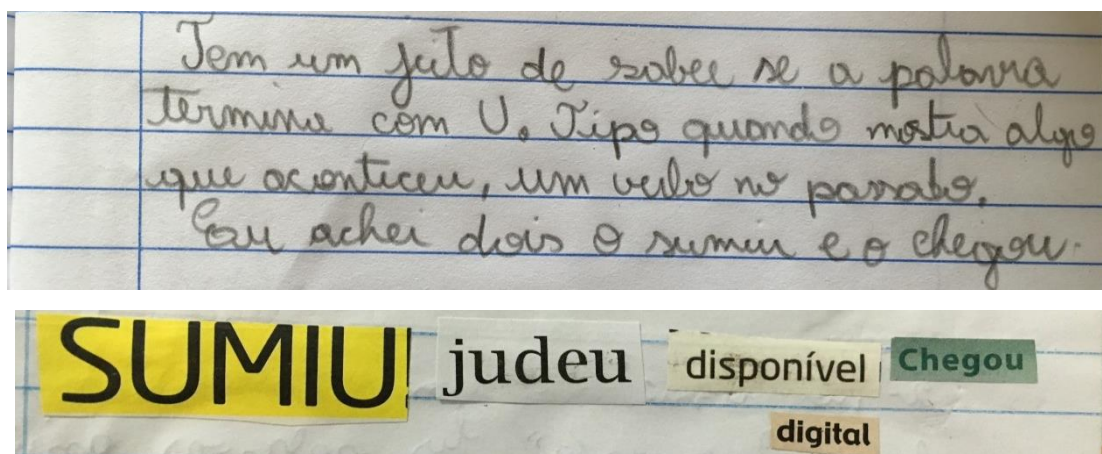 Tem um jeito de saber se a palavra
termina com U. Tipo quando mostra algo
que aconticeu, um verbo no passado.
Eu achei dois o sumiu e o chegou.
SUMIU judeu disponível Chegou
digital